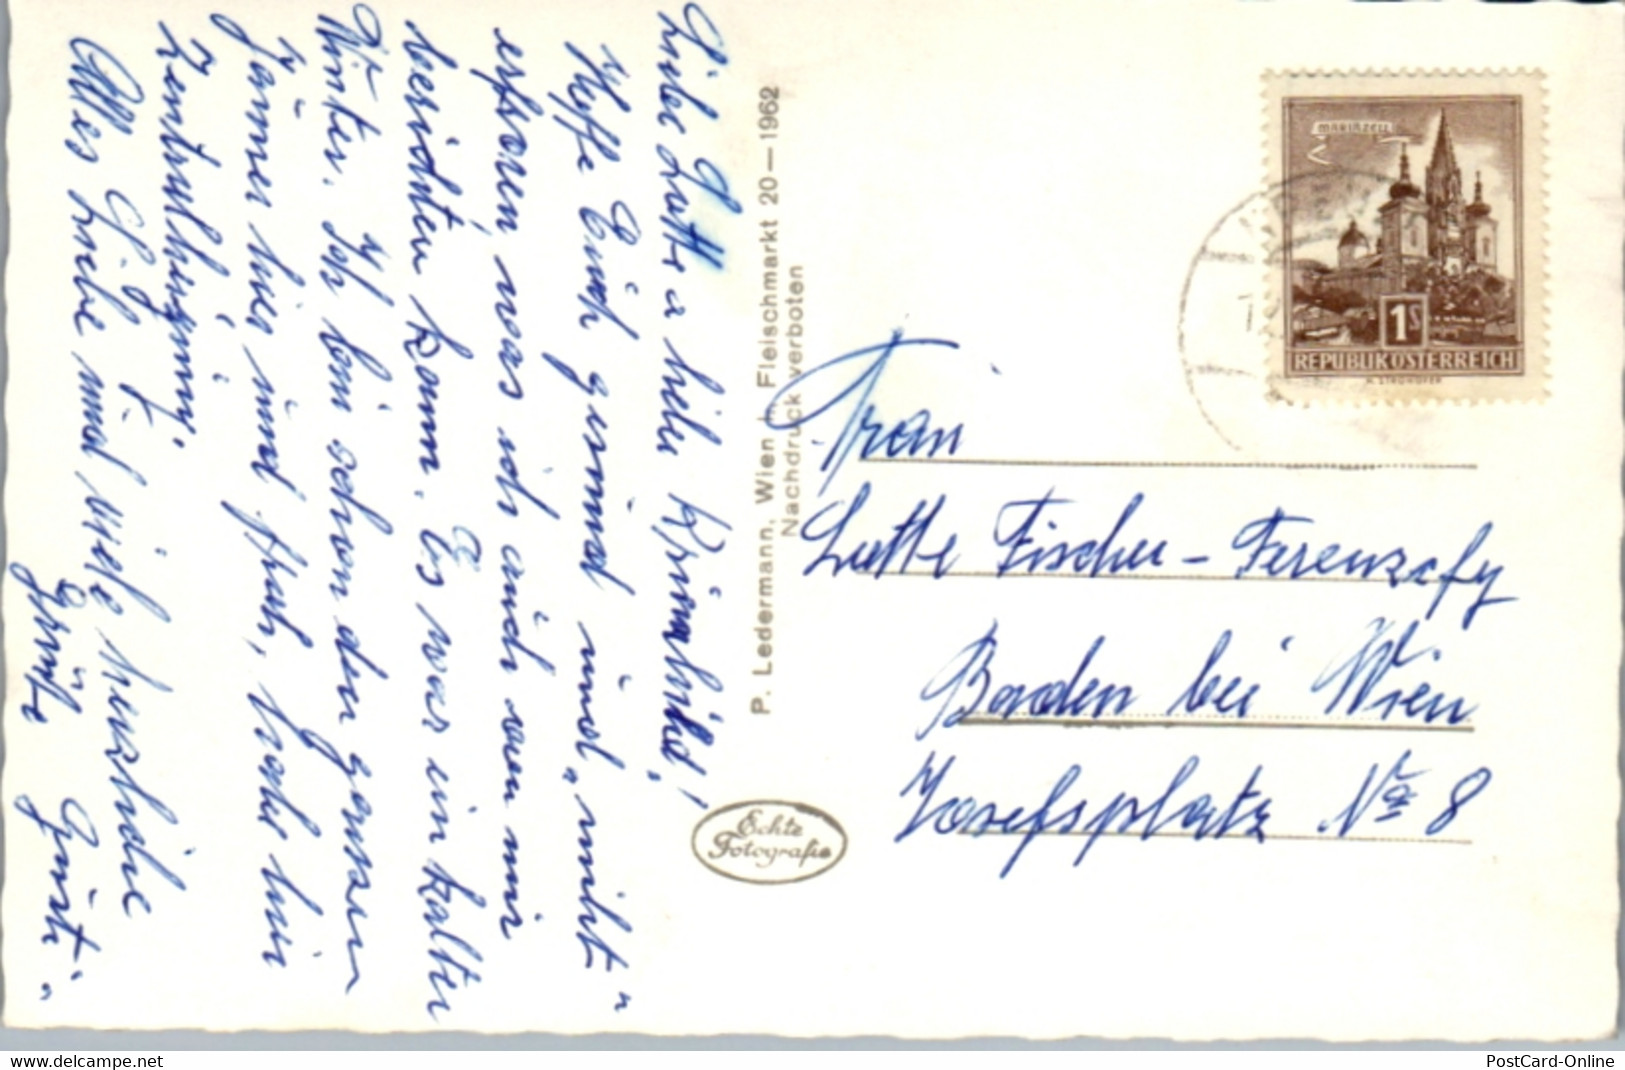 Liebe Lotte u liebe
Hoffe Euch gesund und „nicht"
erfroren was ich auch von mir
berichten kann. Es war ein kalter
Winter. Ich bin schon den ganzen
Jänner hier und froh, habe hier
Zentralheizung.
Alles Liebe und viele herzliche
Grüße
P. Ledermann, Wien I, Fleischmarkt 20—1962
Nachdruck verboten
Echte
Fotografie
MARIAZELL
1S
REPUBLIK ÖSTERREICH
Frau
Lotte Fischer - Ferenczfy
Baden bei Wien
Josefsplatz No 8
www.delcampe.net
PostCard-Online